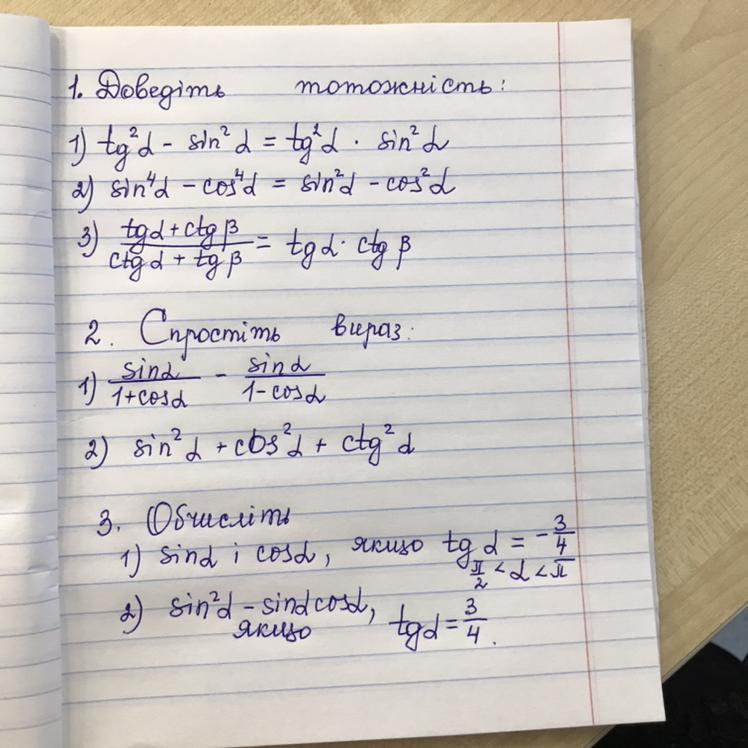 1. Доведіть тотожність:
1) tg²α - sin²α = tg²α · sin²α
2) sin⁴α - cos⁴α = sin²α - cos²α
3) (tgα + ctgβ)/(ctgα + tgβ) = tgα · ctgβ
2. Спростіть вираз:
1) sinα/(1+cosα) - sinα/(1-cosα)
2) sin²α + cos²α + ctg²α
3. Обчисліть
1) sinα і cosα, якщо tgα = -3/4
π/2 < α < π
2) sin²α - sinαcosα,
якщо tgα = 3/4.